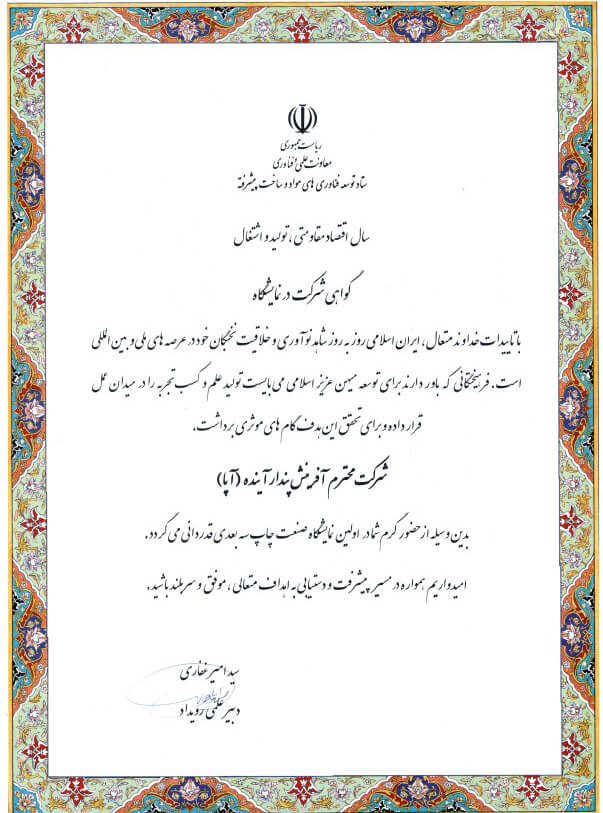 ریاست جمهوری
معاونت علمی و فناوری
ستاد توسعه فناوری های مواد و ساخت پیشرفته
سال اقتصاد مقاومتی ، تولید و اشتغال
گواهی شرکت در نمایشگاه
با تاییدات خداوند متعال ، ایران اسلامی روز به روز شاهد نوآوری و خلاقیت نخبگان خود در عرصه های ملی و بین المللی
است. فرهیختگانی که باور دارند برای توسعه میهن عزیز اسلامی می بایست تولید علم و کسب تجربه را در میدان عمل
قرار داده و برای تحقق این هدف گام های موثری برداشت.
شرکت محترم آفرینش پندار آینده (آپا)
بدین وسیله از حضور گرم شما در اولین نمایشگاه صنعت چاپ سه بعدی قدردانی می گردد.
امیدواریم همواره در مسیر پیشرفت و دستیابی به اهداف متعالی ، موفق و سربلند باشید.
سید امیر غفاری
دبیر علمی رویداد